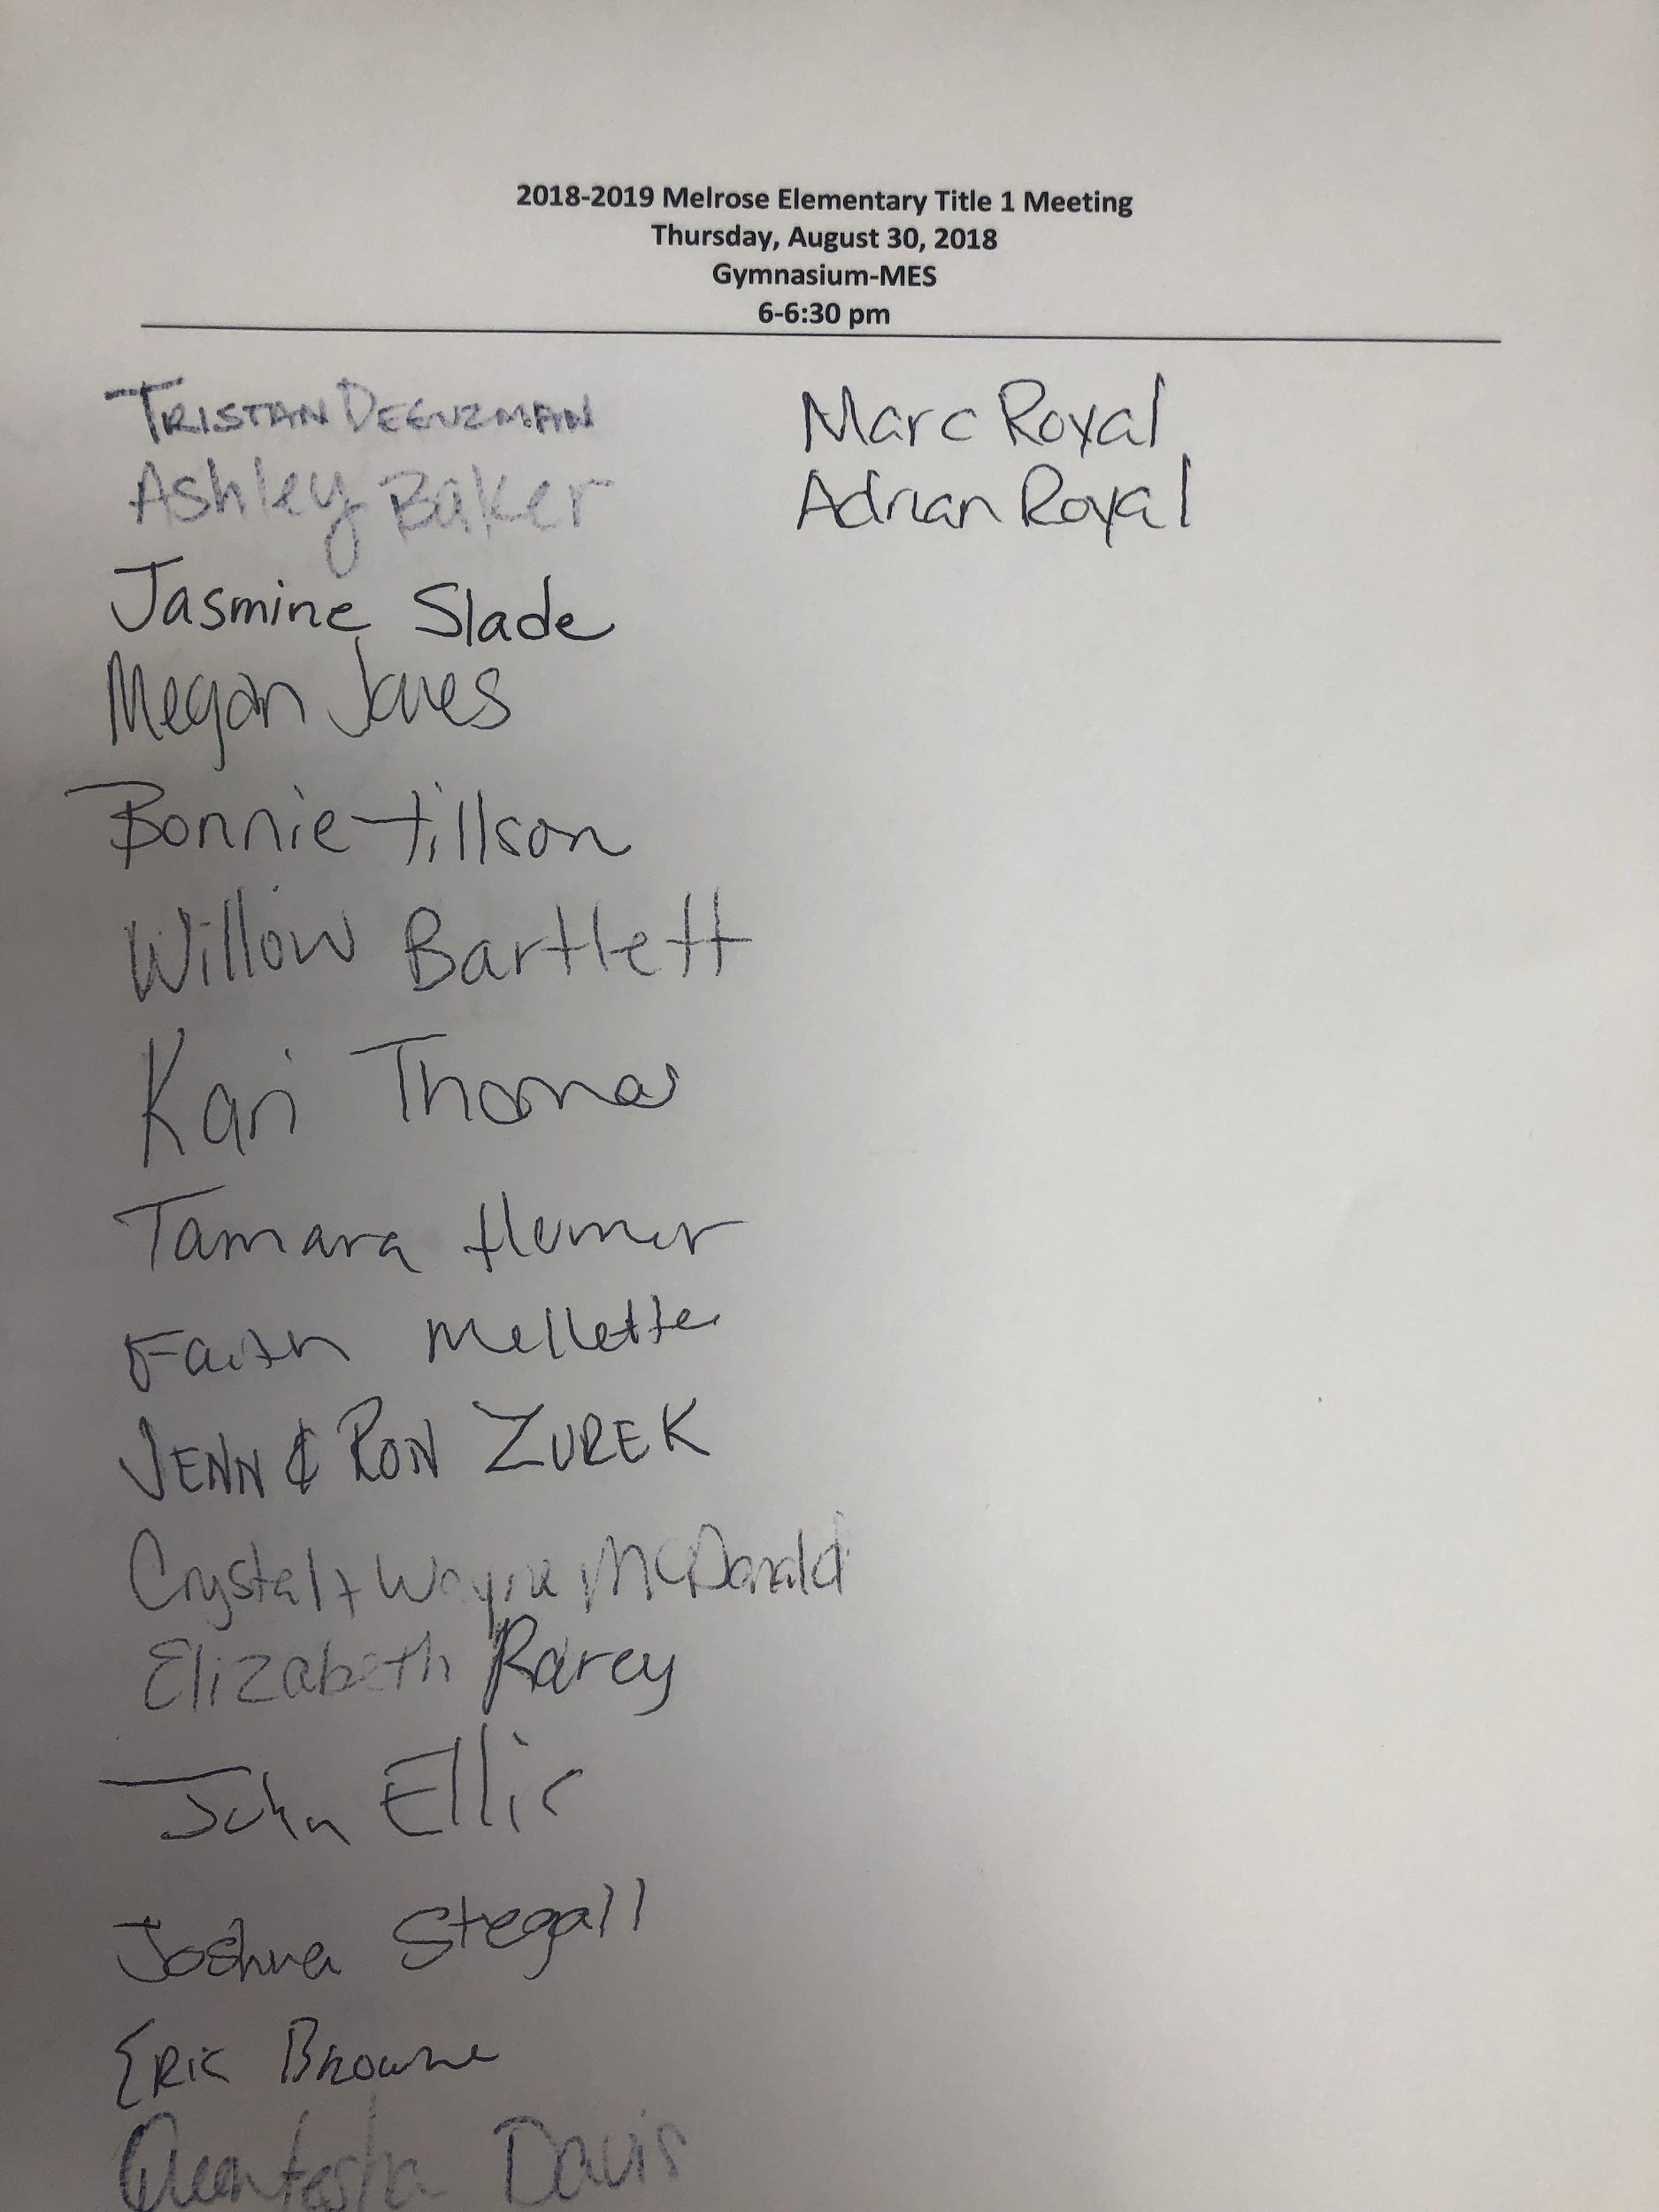 2018-2019 Melrose Elementary Title 1 Meeting
Thursday, August 30, 2018
Gymnasium-MES
6-6:30 pm
TRISTAN DEGUZMAN
Ashley Baker
Jasmine Slade
Megan Jones
Bonnie Tillson
Willow Bartlett
Kari Thomas
Tamara
Faith Mellette
JENN & RON ZUREK
Crystal + Wayne McDonald
Elizabeth Rarey
John Ellis
Joshua Stegall
ERIK Browne
Davis
Marc Royal
Adrian Royal